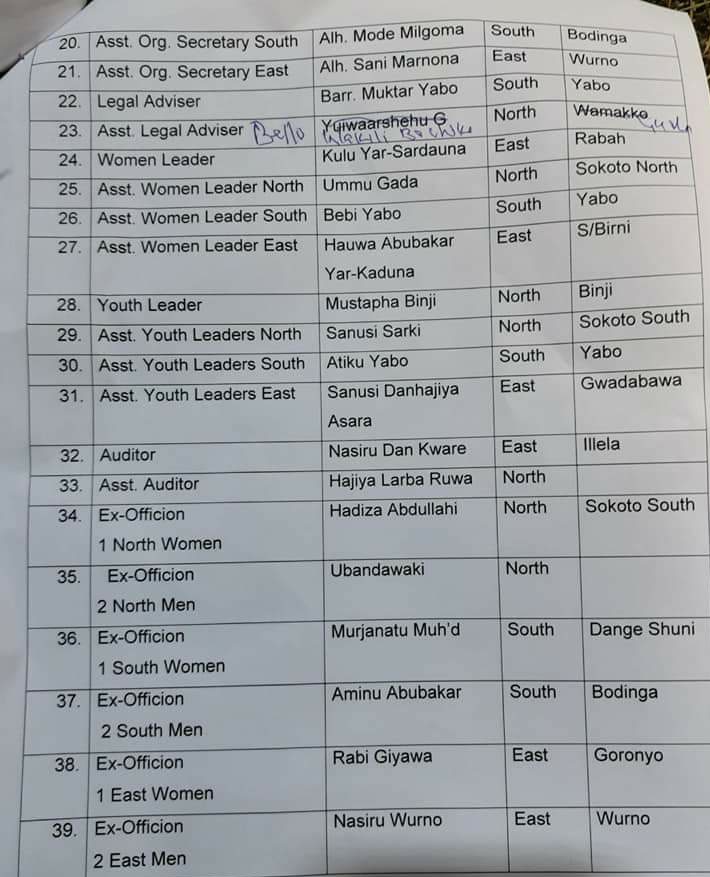 20. Asst. Org. Secretary South Alh. Mode Milgoma South Bodinga
21. Asst. Org. Secretary East Alh. Sani Marnona East Wurno
22. Legal Adviser Barr. Muktar Yabo South Yabo
23. Asst. Legal Adviser Bello North Wamakko
24. Women Leader Kulu Yar-Sardauna East Rabah
25. Asst. Women Leader North Ummu Gada North Sokoto North
26. Asst. Women Leader South Bebi Yabo South Yabo
27. Asst. Women Leader East Hauwa Abubakar East S/Birni
Yar-Kaduna
28. Youth Leader Mustapha Binji North Binji
29. Asst. Youth Leaders North Sanusi Sarki North Sokoto South
30. Asst. Youth Leaders South Atiku Yabo South Yabo
31. Asst. Youth Leaders East Sanusi Danhajiya East Gwadabawa
Asara
32. Auditor Nasiru Dan Kware East Illela
33. Asst. Auditor Hajiya Larba Ruwa North
34. Ex-Officion Hadiza Abdullahi North Sokoto South
1 North Women
35. Ex-Officion Ubandawaki North
2 North Men
36. Ex-Officion Murjanatu Muh'd South Dange Shuni
1 South Women
37. Ex-Officion Aminu Abubakar South Bodinga
2 South Men
38. Ex-Officion Rabi Giyawa East Goronyo
1 East Women
39. Ex-Officion Nasiru Wurno East Wurno
2 East Men